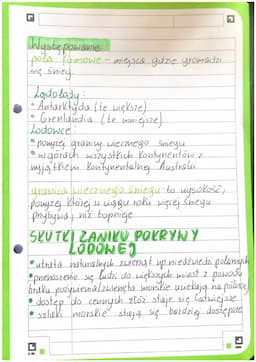 Występowanie
pola firnowe - miejsca gdzie gromadzi
się śnieg.
Lądolądy:
• Antarktyda (te większe)
• Grenlandia (te mniejsze)
Lodowce:
• powyżej granicy wiecznego śniegu
• w górach wszystkich kontynentów z
wyjątkiem kontynentalnej Australii
granica wiecznego śniegu - to wysokość,
powyżej której w ciągu roku więcej śniegu
przybywa, niż topnieje
SKUTKI ZANIKU POKRYWY
LODOWEJ
• utrata naturalnych zwierząt np niedźwiedzi polarnych
• przenoszenie się ludzi do większych miast z powodu
braku pożywienia/zwierzęta morskie uciekają na północ
• dostęp do cennych złóż staje się łatwiejsze
• szlaki morskie stają się bardziej dostępne